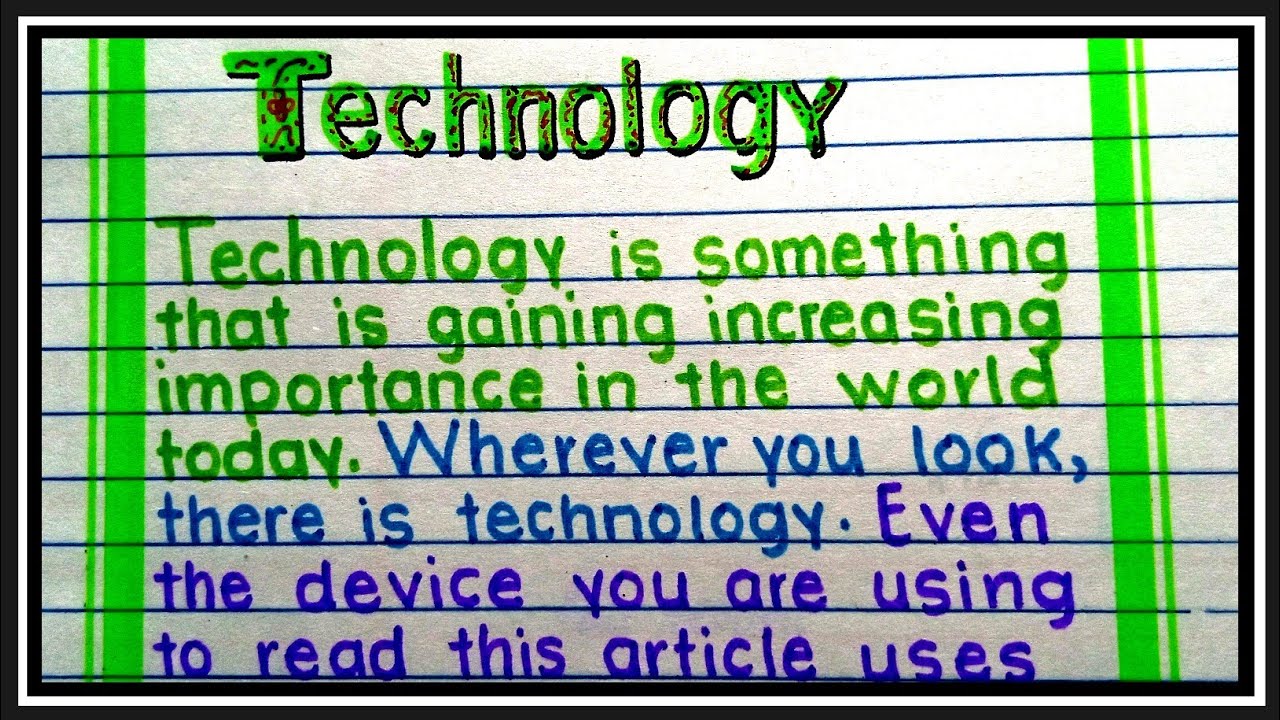 Technology
Technology is something
that is gaining increasing
importance in the world
today. Wherever you look,
there is technology. Even
the device you are using
to read this article uses